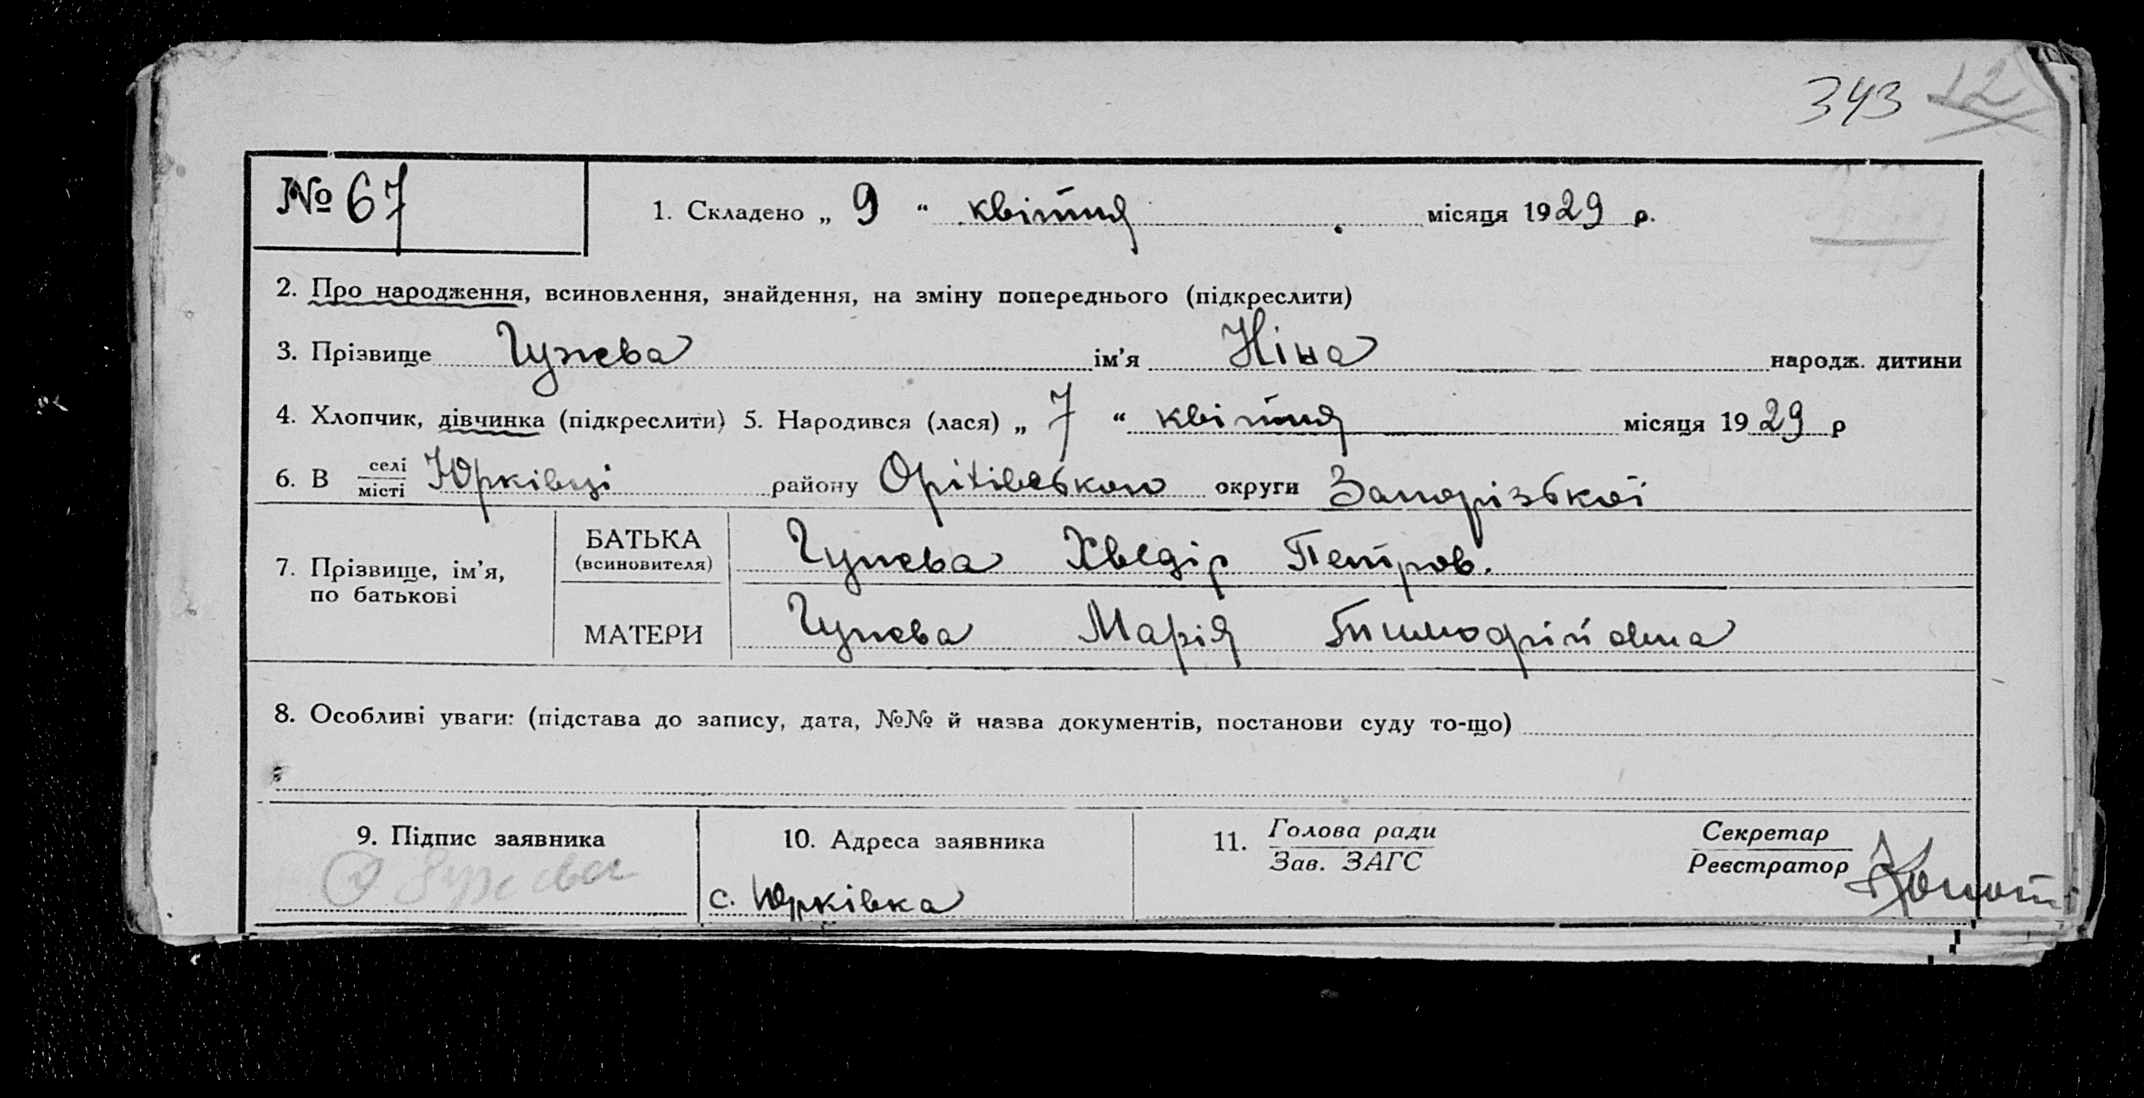 343 12
№ 67
1. Складено „ 9 “ квітня місяця 1929 р.
2. Про народження, всиновлення, знайдення, на зміну попереднього (підкреслити)
3. Прізвище Гужева ім’я Ніна народж. дитини
4. Хлопчик, дівчинка (підкреслити) 5. Народився (лася) „ 7 “ квітня місяця 1929 р
6. В селі місті Юрківці району Оріхівського округи Запорізької
7. Прізвище, ім’я, по батькові
БАТЬКА (всиновителя) Гужева Хведір Петров.
МАТЕРИ Гужева Марія Тимофійовна
8. Особливі уваги: (підстава до запису, дата, №№ й назва документів, постанови суду то-що)
9. Підпис заявника
10. Адреса заявника
с. Юрківка
11. Голова ради
Зав. ЗАГС
Секретар
Реєстратор